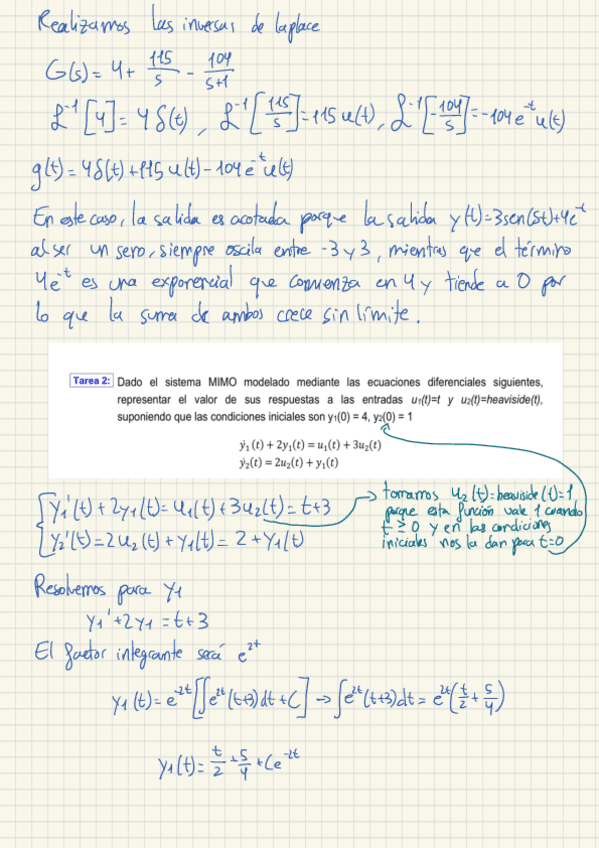 Realizamos las inversas de laplace
G(s) = 4 + 115/s - 104/(s+1)
ℒ⁻¹[4] = 4δ(t), ℒ⁻¹[115/s] = 115u(t), ℒ⁻¹[-104/s] = -104e⁻ᵗu(t)
g(t) = 4δ(t) + 115u(t) - 104e⁻ᵗu(t)
En este caso, la salida es acotada porque la salida y(t) = 3sen(5t) + 4e⁻ᵗ
al ser un seno, siempre oscila entre -3 y 3, mientras que el término
4e⁻ᵗ es una exponencial que comienza en 4 y tiende a 0 por
lo que la suma de ambos crece sin límite.
Tarea 2: Dado el sistema MIMO modelado mediante las ecuaciones diferenciales siguientes,
representar el valor de sus respuestas a las entradas u₁(t)=t y u₂(t)=heaviside(t),
suponiendo que las condiciones iniciales son y₁(0) = 4, y₂(0) = 1
ẏ₁(t) + 2y₁(t) = u₁(t) + 3u₂(t)
ẏ₂(t) = 2u₂(t) + y₁(t)
y₁'(t) + 2y₁(t) = u₁(t) + 3u₂(t) = t+3
y₂'(t) = 2u₂(t) + y₁(t) = 2 + y₁(t)
→ tomamos u₂(t) = heaviside(t) = 1
porque esta función vale 1 cuando
t ≥ 0 y en las condiciones
iniciales nos la dan para t=0
Resolvemos para y₁
y₁' + 2y₁ = t+3
El factor integrante será e²ᵗ
y₁(t) = e⁻²ᵗ[∫e²ᵗ(t+3)dt + C] → ∫e²ᵗ(t+3)dt = e²ᵗ(t/2 + 5/4)
y₁(t) = t/2 + 5/4 + Ce⁻²ᵗ